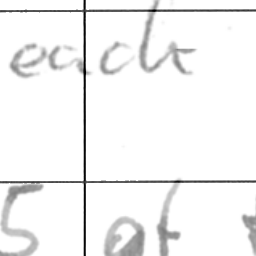 each
5 of